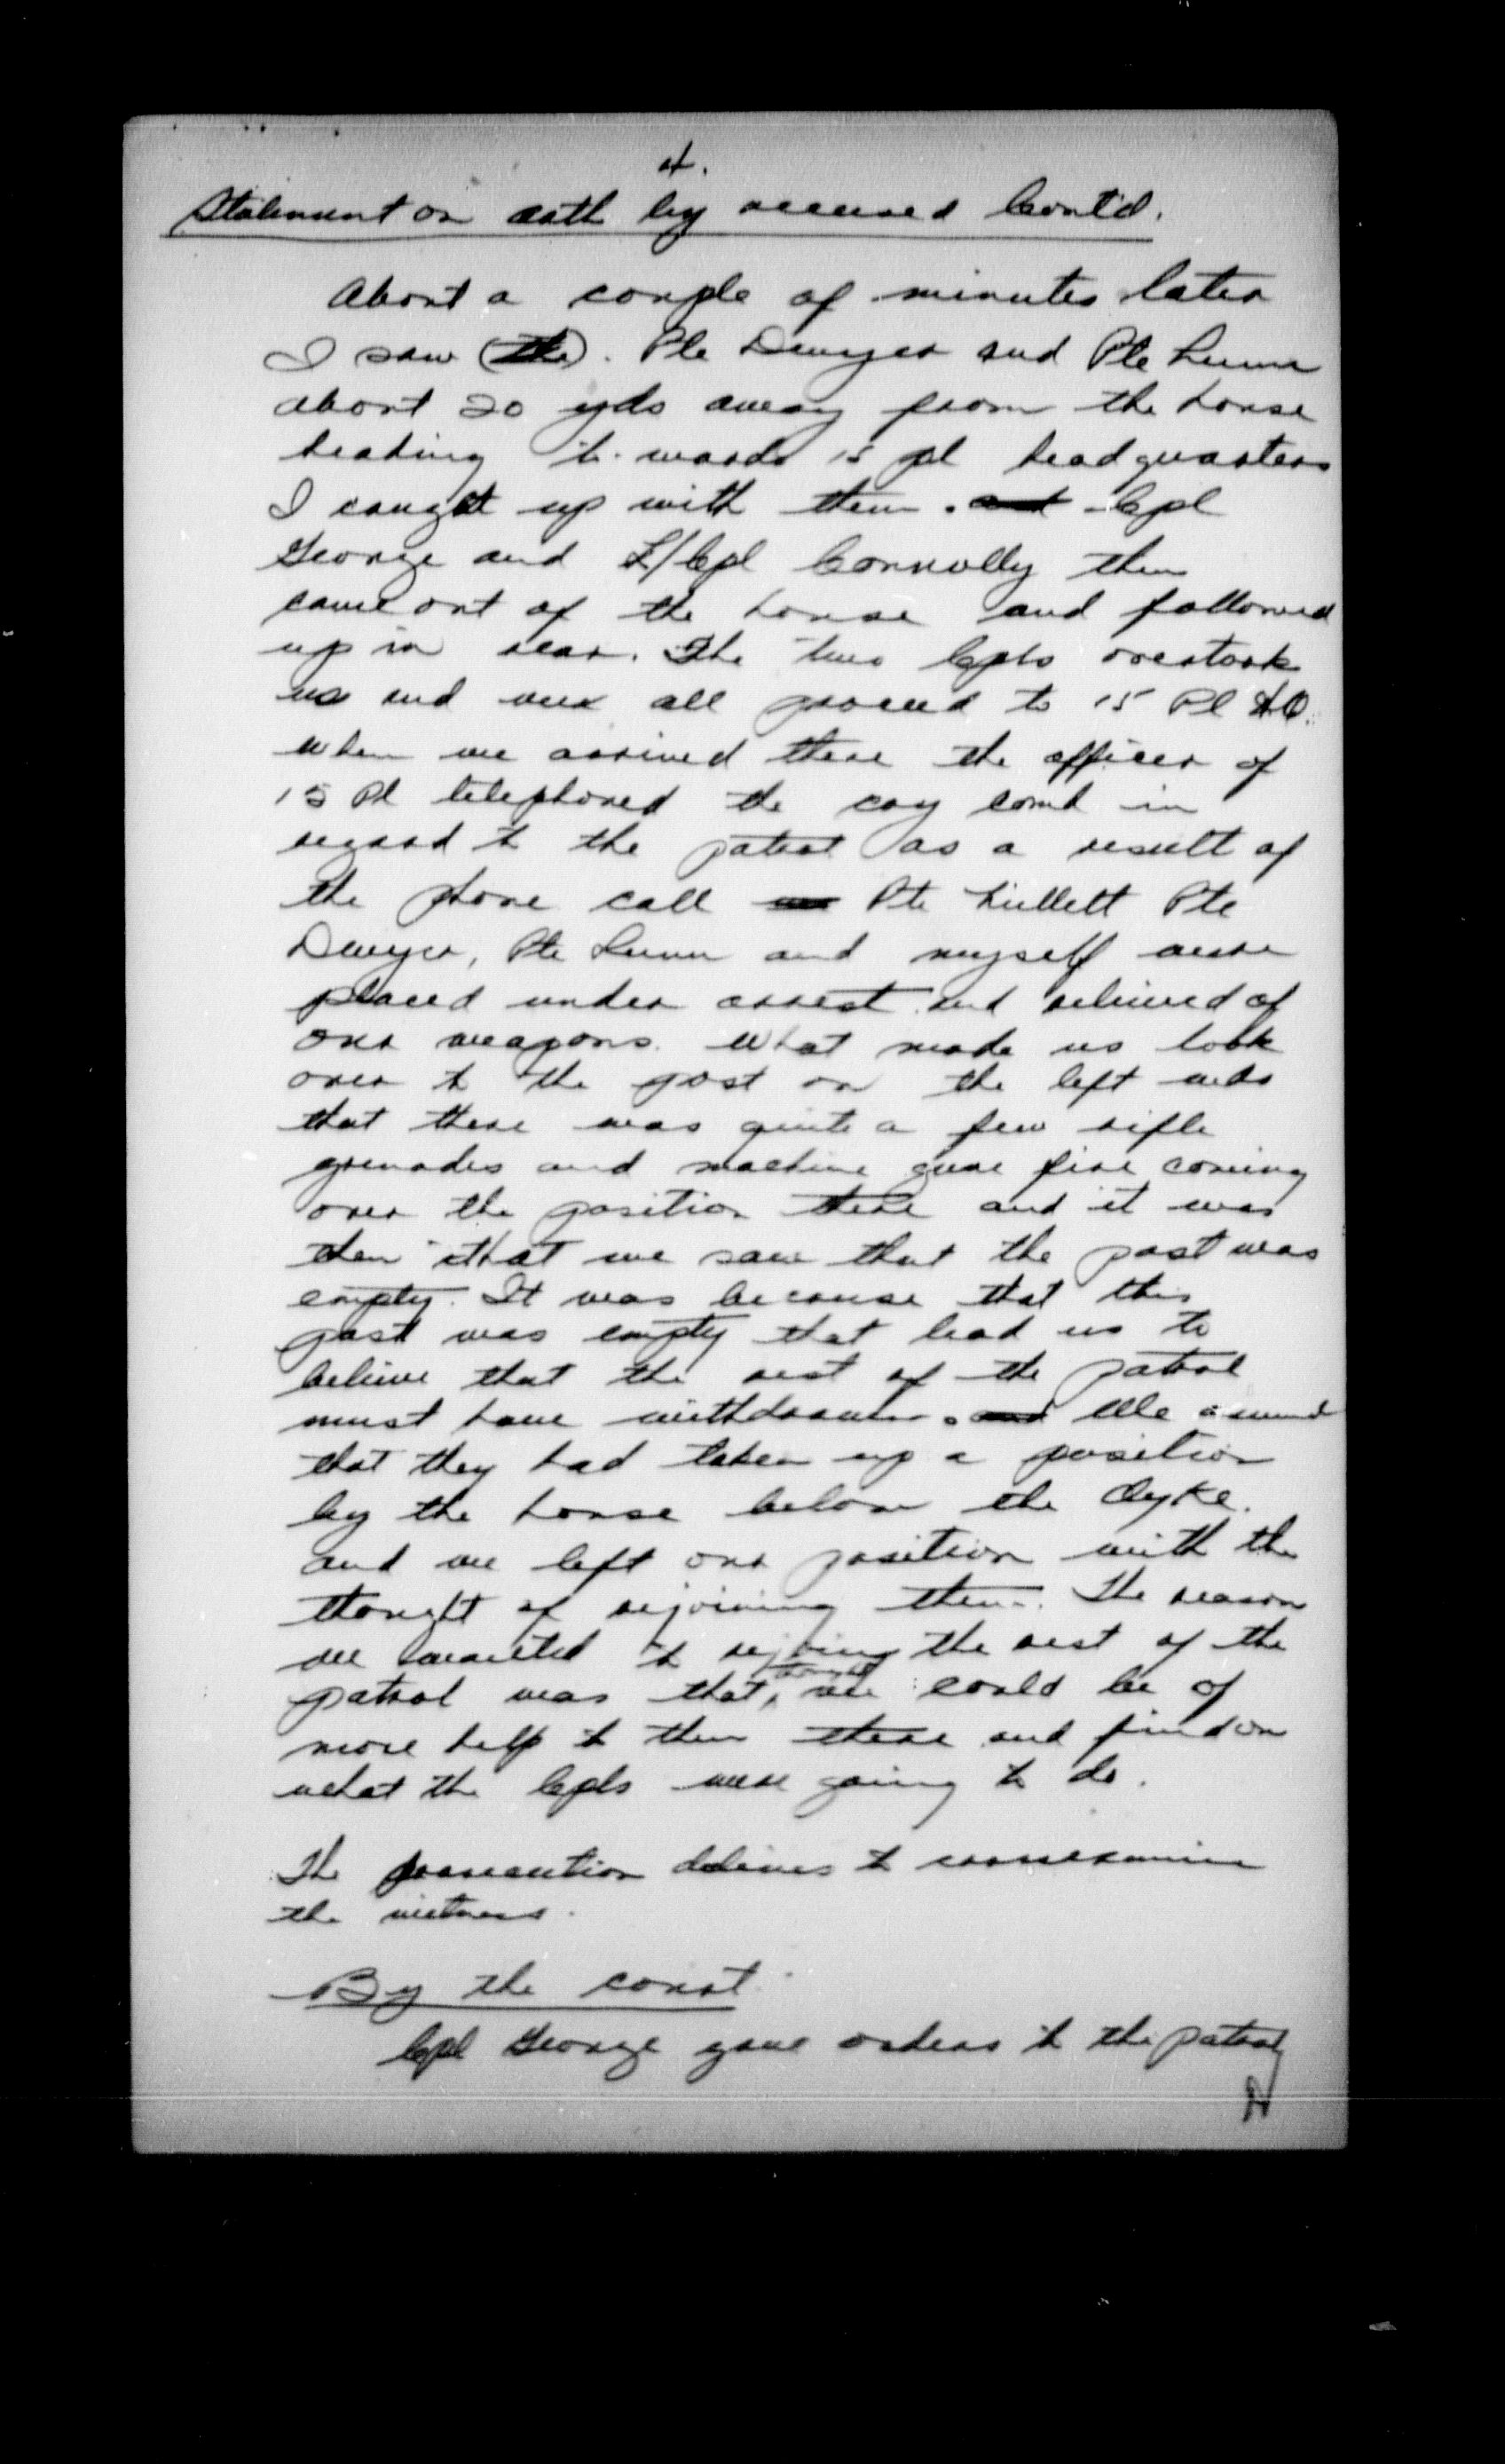 4.
Statement on oath by accused Cont'd.
About a couple of minutes later
I saw (the). Pte Dwyer and Pte Lunn
about 20 yds away from the house
heading to wards 15 pl headquarters
I caught up with them. and Cpl
George and L/Cpl Connolly then
came out of the house and followed
up in rear. The two Cpls overtook
us and we all proceed to 15 Pl HQ.
when we arrived there the officer of
15 Pl telephoned the coy comd in
regard to the patrol as a result of
the phone call Pte Pte
Dwyer, Pte Lunn and myself were
placed under arrest and relieved of
our weapons. What made us look
over to the post on the left was
that there was quite a few rifle
grenades and machine gune fire coming
over the position there and it was
then that we saw that the post was
empty. It was because that this
post was empty that lead us to
believe that the rest of the patrol
must have withdrawn. and We asumed
that they had taken up a position
by the house below the dyke.
and we left our position with the
thought of rejoining them. The reason
we wanted to rejoing the rest of the
patrol was that we could be of
more help to them there and find out
what the Cpls were going to do.
The prosecution declines to crossexamine
the witness.
By the court
Cpl George gave orders to the patrol